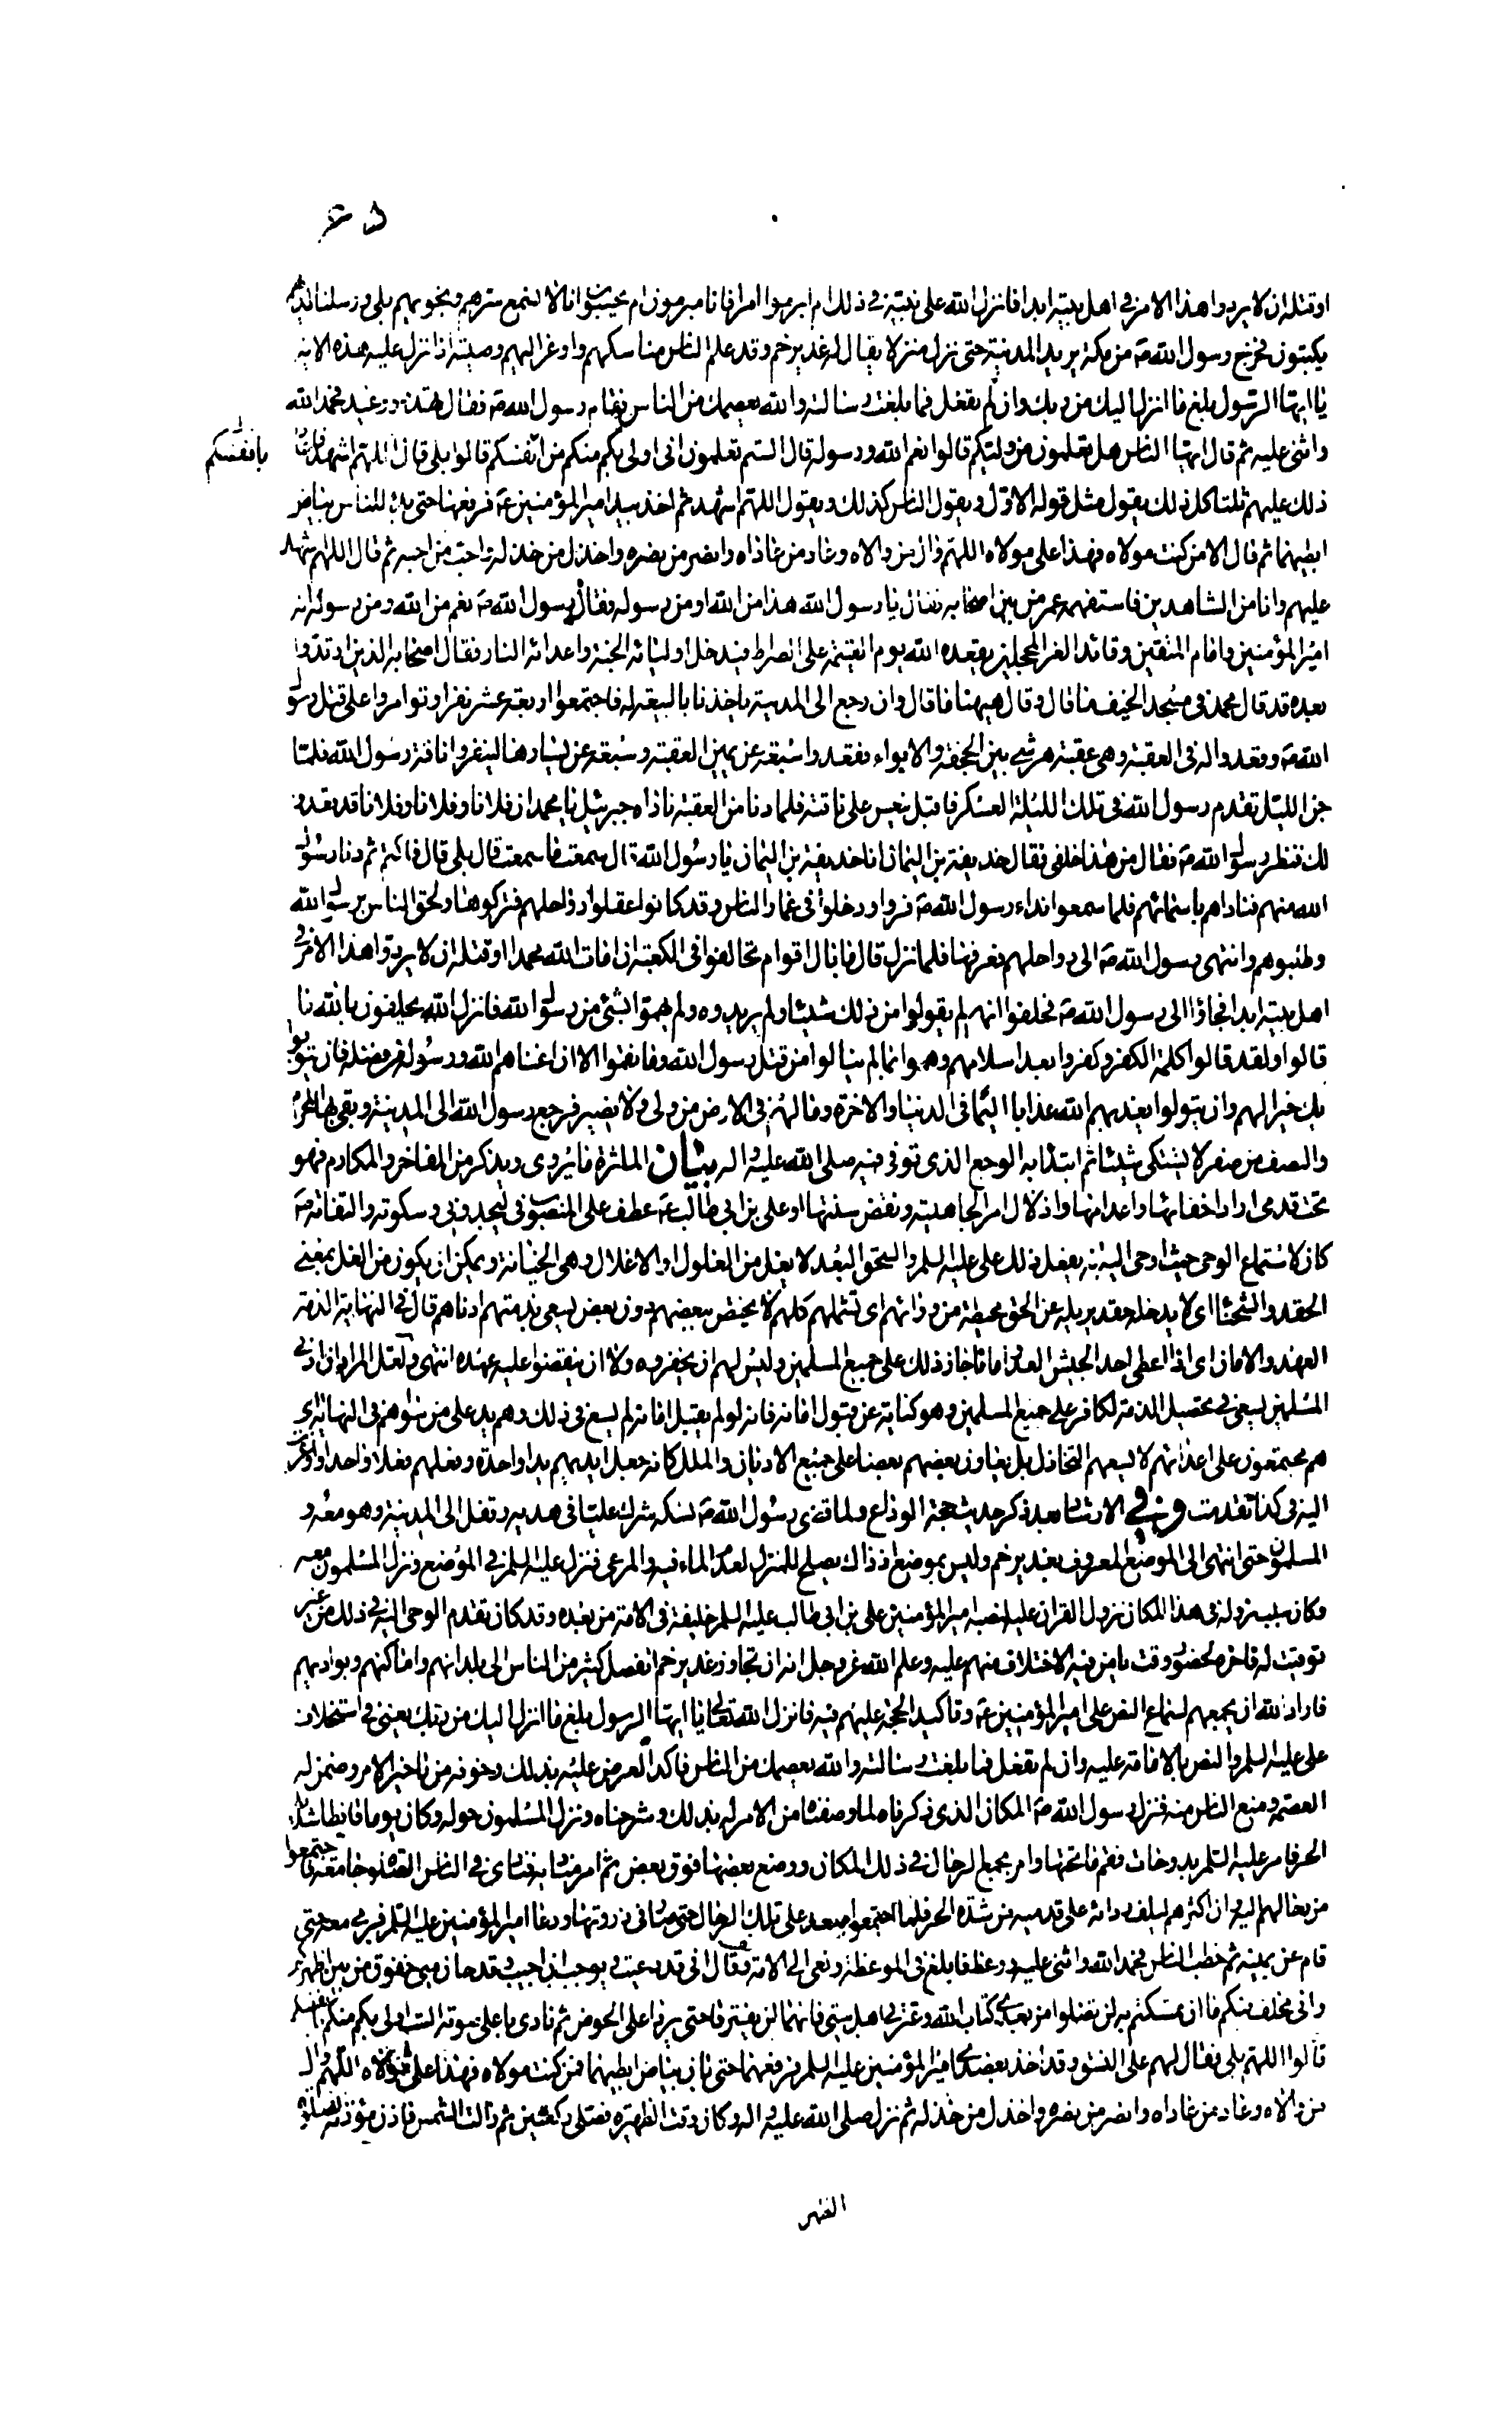 او قتله ان لا يردوا هذا الامر في اهل بيته ابدا فانزل الله على نبيه في ذلك ام ابرموا امرا فانا مبرمون ام يحسبون انا لا نسمع سرهم ونجويهم بلى ورسلنا لديهم
يكتبون فخرج رسول الله ص من مكة يريد المدينة حتى نزل منزلا يقال له غدير خم وقد علم الناس مناسكهم واوعز اليهم وصيته اذ انزل عليه هذه الاية
يا ايها الرسول بلغ ما انزل اليك من ربك وان لم تفعل فما بلغت رسالته والله يعصمك من الناس فقام رسول الله ص فقال تهديد ووعيد فحمد الله
واثنى عليه ثم قال ايها الناس هل تعلمون من وليكم قالوا نعم الله ورسوله قال الستم تعلمون اني اولى بكم منكم من انفسكم قالوا بلى قال اللهم اشهد فاعاد
بانفسكم
ذلك عليهم ثلثا كل ذلك يقول مثل قوله الاول ويقول الناس كذلك ويقول اللهم اشهد ثم اخذ بيد امير المؤمنين ع فرفعها حتى بدا للناس بياض
ابطيهما ثم قال الا من كنت مولاه فهذا علي مولاه اللهم وال من والاه وعاد من عاداه وانصر من نصره واخذل من خذله واحب من احبه ثم قال اللهم اشهد
عليهم وانا من الشاهدين فاستفهمه عمر من بين اصحابه فقال يا رسول الله هذا من الله او من رسوله فقال رسول الله ص نعم من الله ومن رسوله انه
امير المؤمنين وامام المتقين وقائد الغر المحجلين يقعده الله يوم القيمة على الصراط فيدخل اوليائه الجنة واعدائه النار فقال اصحابه الذين ارتدوا
بعده قد قال محمد في مسجد الخيف ما قال وقال ههنا ما قال وان رجع الى المدينة ياخذنا بالبيعة له فاجتمعوا اربعة عشر نفرا وتوامروا على قتل رسول
الله ص وقعدوا له في العقبة وهي عقبة هرشى بين الجحفة والابواء فقعدوا سبعة عن يمين العقبة وسبعة عن يسارها لينفروا ناقة رسول الله فلما
جن الليل تقدم رسول الله في تلك الليلة العسكر فاقبل ينعس على ناقته فلما دنا من العقبة ناداه جبرئيل يا محمد ان فلانا وفلانا وفلانا قد قعدوا
لك فنظر رسول الله ص فقال من هذا خلفي فقال حذيفة بن اليمان انا حذيفة بن اليمان يا رسول الله قال سمعت ما سمعت قال بلى قال فاكتم ثم دنا رسول
الله منهم فناداهم باسمائهم فلما سمعوا نداء رسول الله ص فروا ودخلوا في غمار الناس وقد كانوا عقلوا رواحلهم فتركوها ولحق الناس برسول الله
وطلبوهم وانتهى رسول الله ص الى رواحلهم فعرفها فلما نزل قال ما بال اقوام تحالفوا في الكعبة ان امات الله محمدا او قتله ان لا يردوا هذا الامر في
اهل بيته ابدا فجاؤا الى رسول الله ص فحلفوا انهم لم يقولوا من ذلك شيئا ولم يريدوه ولم يهموا بشئ من رسول الله فانزل الله يحلفون بالله ما
قالوا ولقد قالوا كلمة الكفر وكفروا بعد اسلامهم وهموا بما لم ينالوا من قتل رسول الله وما نقموا الا ان اغناهم الله ورسوله من فضله فان يتوبوا
يك خيرا لهم وان يتولوا يعذبهم الله عذابا اليما في الدنيا والاخرة وما لهم في الارض من ولى ولا نصير فرجع رسول الله الى المدينة وبقي بها المحرم
والنصف من صفر لا يشتكي شيئا ثم ابتدا به الوجع الذي توفي فيه صلى الله عليه واله بيان الماثرة ما يروى ويذكر من المفاخر والمكارم فهو
تحت قدمي اراد اخفائها واعدامها واذلال امر الجاهلية ونقض سنتها او علي بن ابي طالب ع عطف على المنصوب في ليجدوني وسكوته والتفاته ص
كان لاستماع الوحي حيث اوحى اليه انه يفعل ذلك علي عليه السلم والسحق البعد لا يغل من الغلول او الاغلال وهي الخيانة ويمكن ان يكون من الغل بمعنى
الحقد والشحناء اى لا يدخله حقد يزيله عن الحق محيطة من ورائهم اى تشملهم كلهم لا يختص ببعضهم دون بعض يسعى بذمتهم ادناهم قال في النهاية الذمة
العهد والامان اى اذا اعطى احد الجيش العدو امانا جاز ذلك على جميع المسلمين وليس لهم ان يخفروه ولا ان ينقضوا عليه عهده انتهى ولعل المراد ان ادنى
المسلمين يسعى في تحصيل الذمة لكافر على جميع المسلمين وهو كناية عن قبول امانه فانه لو لم يقبل امانه لم يسع في ذلك وهم يد على من سواهم في النهاية اي
هم مجتمعون على اعدائهم لا يسعهم التخاذل بل يعاون بعضهم بعضا على جميع الاديان والملل كانه جعل ايديهم يدا واحدة وفعلهم فعلا واحدا واوعزت
اليه في كذا تقدمت وفي الارشاد بعد ذكر حديث حجة الوداع ولما قضى رسول الله ص نسكه شرك عليا في هديه وقفل الى المدينة وهو معه و
المسلمون حتى انتهى الى الموضع المعروف بغدير خم وليس بموضع اذ ذاك يصلح للمنزل لعدم الماء فيه والمرعى فنزل عليه السلم في الموضع ونزل المسلمون معه
وكان سبب نزوله في هذا المكان نزول القران عليه بنصبه امير المؤمنين علي بن ابي طالب عليه السلم خليفة في الامة من بعده وقد كان تقدم الوحي اليه في ذلك من غير
توقيت له فاخره لحضور وقت يامن فيه الاختلاف منهم عليه وعلم الله عز وجل انه ان تجاوز غدير خم انفصل كثير من الناس الى بلدانهم واماكنهم وبواديهم
فاراد الله ان يجمعهم لسماع النص على امير المؤمنين ع وتاكيد الحجة عليهم فيه فانزل الله تعالى يا ايها الرسول بلغ ما انزل اليك من ربك يعني في استخلاف
علي عليه السلم والنص بالامامة عليه وان لم تفعل فما بلغت رسالته والله يعصمك من الناس فاكد الفرض عليه بذلك وخوفه من تاخير الامر وضمن له
العصمة ومنع الناس منه فنزل رسول الله ص المكان الذي ذكرناه لما وصفنا من الامر له بذلك وشرحناه ونزل المسلمون حوله وكان يوما قايظا شديد
الحر فامر عليه السلم بدوحات فقم ما تحتها وامر بجمع الرحال في ذلك المكان ووضع بعضها فوق بعض ثم امر مناديه فنادى في الناس الصلوة جامعة فاجتمعوا
من رحالهم اليه وان اكثرهم ليلف ردائه على قدميه من شدة الحر فلما اجتمعوا صعد على تلك الرحال حتى صار في ذروتها ودعا امير المؤمنين عليه السلم فرقى معه حتى
قام عن يمينه ثم خطب الناس فحمد الله واثنى عليه ووعظ فابلغ في الموعظة ونعى الى الامة نفسه وقال اني قد دعيت ويوشك ان اجيب وقد حان مني خفوق من بين اظهركم
واني مخلف فيكم ما ان تمسكتم به لن تضلوا من بعدي كتاب الله وعترتي اهل بيتي فانهما لن يفترقا حتى يردا علي الحوض ثم نادى باعلى صوته الست اولى بكم منكم بانفسكم
قالوا اللهم بلى فقال لهم على النسق وقد اخذ بضبعي امير المؤمنين عليه السلم فرفعهما حتى بان بياض ابطيهما فمن كنت مولاه فهذا علي مولاه اللهم وال
من والاه وعاد من عاداه وانصر من نصره واخذل من خذله ثم نزل صلى الله عليه واله وكان وقت الظهيرة فصلى ركعتين ثم زالت الشمس فاذن مؤذنه لصلوة
الظهر